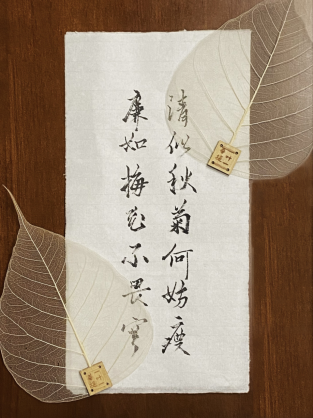 清似秋菊何妨瘦
廉如梅花不畏寒